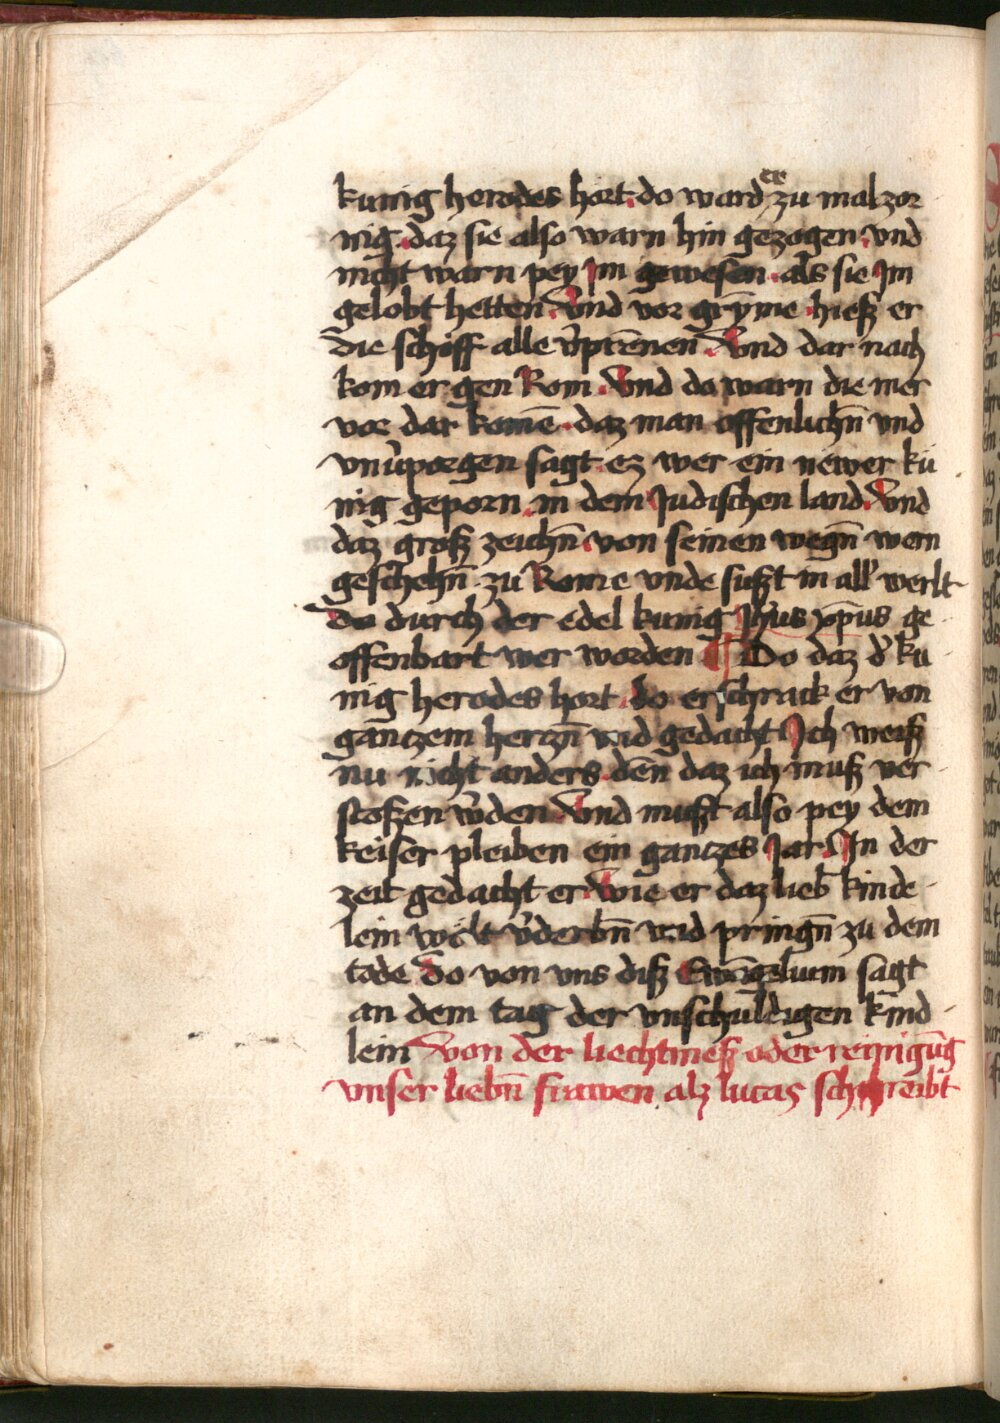 kunig herodes hort. do ward er zu mal zor
nig. daz sie also warn hin gezogen. vnd
nicht warn pey Im gewesen. als sie Im
gelobt hetten. Vnd vor gryme hieß er
die schiff alle v̉prēnen. Vnd dar nach
kom er gen Rom. Vnd do warn die mer
vor dar komē. daz man offenlichn̄ vnd
vnv̉porgen sagt. ez wer ein newer kü
nig geporn in dem Judischen land. Vnd
daz groß zeichn̄. von seinen wegn̄ wern
geschehn̄ zu Rome vnde sußt in all̉ werlt
Do durch der edel kunig Jh̄us xp̄us ge
offenbart wer worden ¶ Do daz d̉ ku
nig herodes hort. do erschrack er von
ganczem herczn̄ vnd gedacht Ich weiß
nu nicht anders. den̄ daz ich muß ver
stoßen w̉den. Vnd mußt also pey dem
keiser pleiben ein ganczes Jar. In der
zeit gedacht er. wie er daz lieb kinde
lein wolt v̉derbn̄ vnd pringn̄ zu dem
tode Do von vns diß Ewāgelium sagt
an dem tag der vnschuldigen kind
lein Von der liechtmeß oder reinigūg
vnser liebn̄ frawen alz lucas schreibt